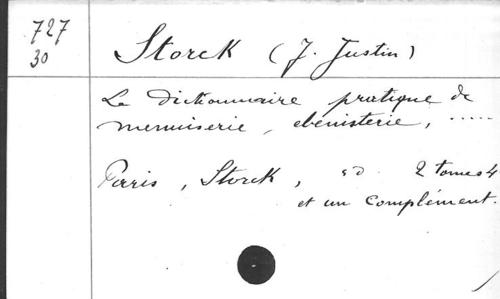 727
30
Storck (J. Justin)
Le dictionnaire pratique de
menuiserie, ebénisterie, .....
Paris, Storck, sd 2 tomes 4
et un complément.